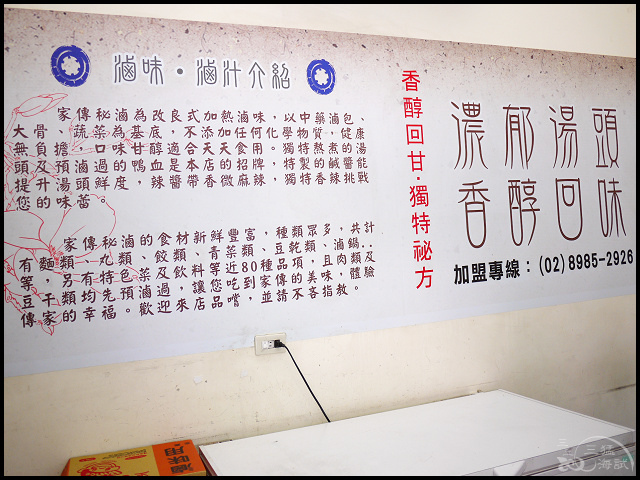 滷味・滷汁介紹
家傳秘滷為改良式加熱滷味，以中藥滷包、
大骨、蔬菜為基底，不添加任何化學物質，健康
無負擔，口味甘醇適合天天食用。獨特熬煮的湯
頭及預滷過的鴨血是本店的招牌，特製的鹹醬能
提升湯頭鮮度，辣醬帶香微麻辣，獨特香辣挑戰
您的味蕾。
家傳秘滷的食材新鮮豐富，種類眾多，共計
有麵類、丸類、餃類、青菜類、豆乾類、滷鍋..
等，另有特色菜及飲料等近80種品項，且肉類及
豆干類均先預滷過，讓您吃到家傳的美味，體驗
傳家的幸福。歡迎來店品嚐，並請不吝指教。
香醇回甘・獨特祕方
濃郁湯頭
香醇回味
加盟專線：(02)8985-2926
滷味用